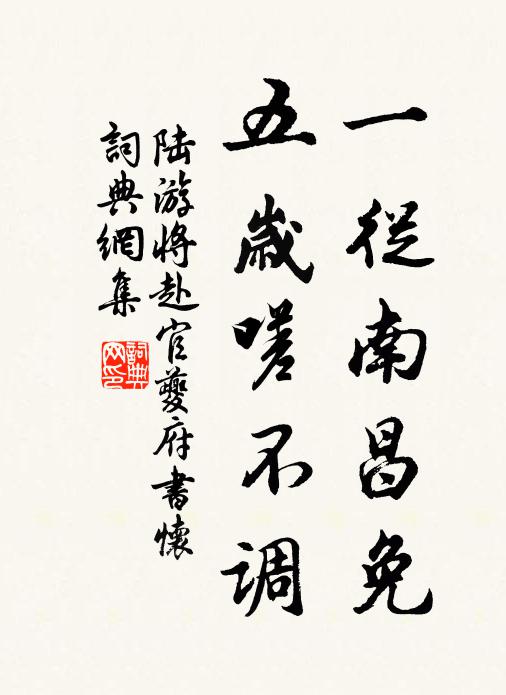 一從南昌免
五歲嗟不调
陆游將赴官夔府書懷
詞典網集
詞典
网印